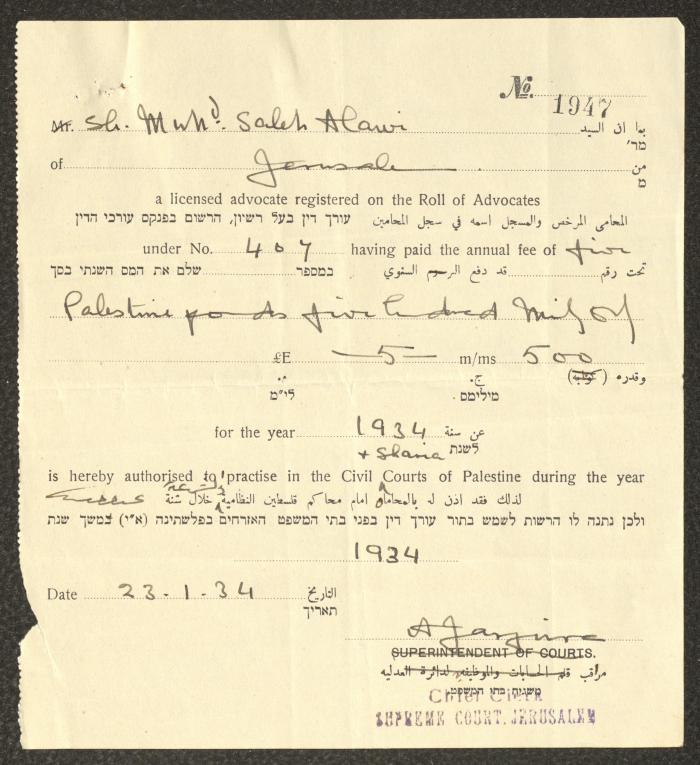 No. 1947
Mr. Sh. Muhd. Saleh Alawi بما ان السيد
מר'
of Jerusalem من
מ
a licensed advocate registered on the Roll of Advocates
المحامى المرخص والمسجل اسمه في سجل المحامين עורך דין בעל רשיון, הרשום בפנקס עורכי הדין
under No. 407 having paid the annual fee of five
تحت رقم قد دفع الرسم السنوي במספר שלם את המס השנתי בסך
Palestine pounds five hundred Mils only
£E —5— m/ms 500
وقدره ( ) ج. م.
מילימס לי"מ
for the year 1934 عن سنة
לשנת
+ Sharia
is hereby authorised to practise in the Civil Courts of Palestine during the year
لذلك فقد اذن له بالمحاماة امام محاكم فلسطين النظامية خلال سنة
ולכן נתנה לו הרשות לשמש בתור עורך דין בפני בתי המשפט האזרחים בפלשתינה (א"י) במשך שנת
1934
Date 23.1.34 التاريخ
תאריך
SUPERINTENDENT OF COURTS.
مراقب قلم الحسابات والموظفين لدائرة العدليه
משגיח בתי המשפט
Chief Clerk
SUPREME COURT, JERUSALEM